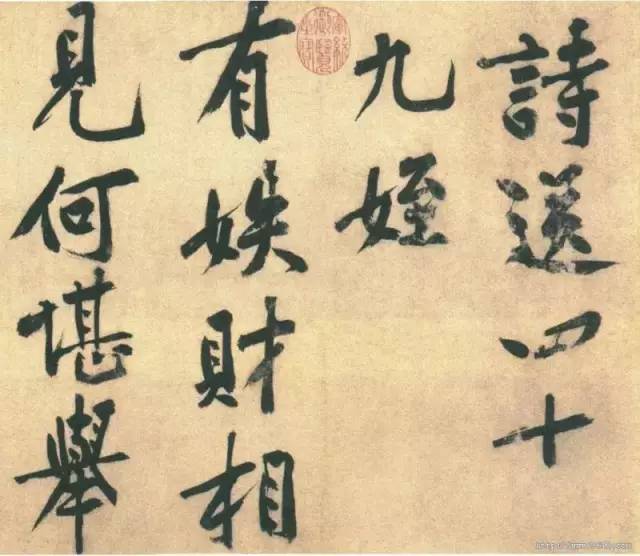 詩送四十
九姪
有娛財相
見何堪舉